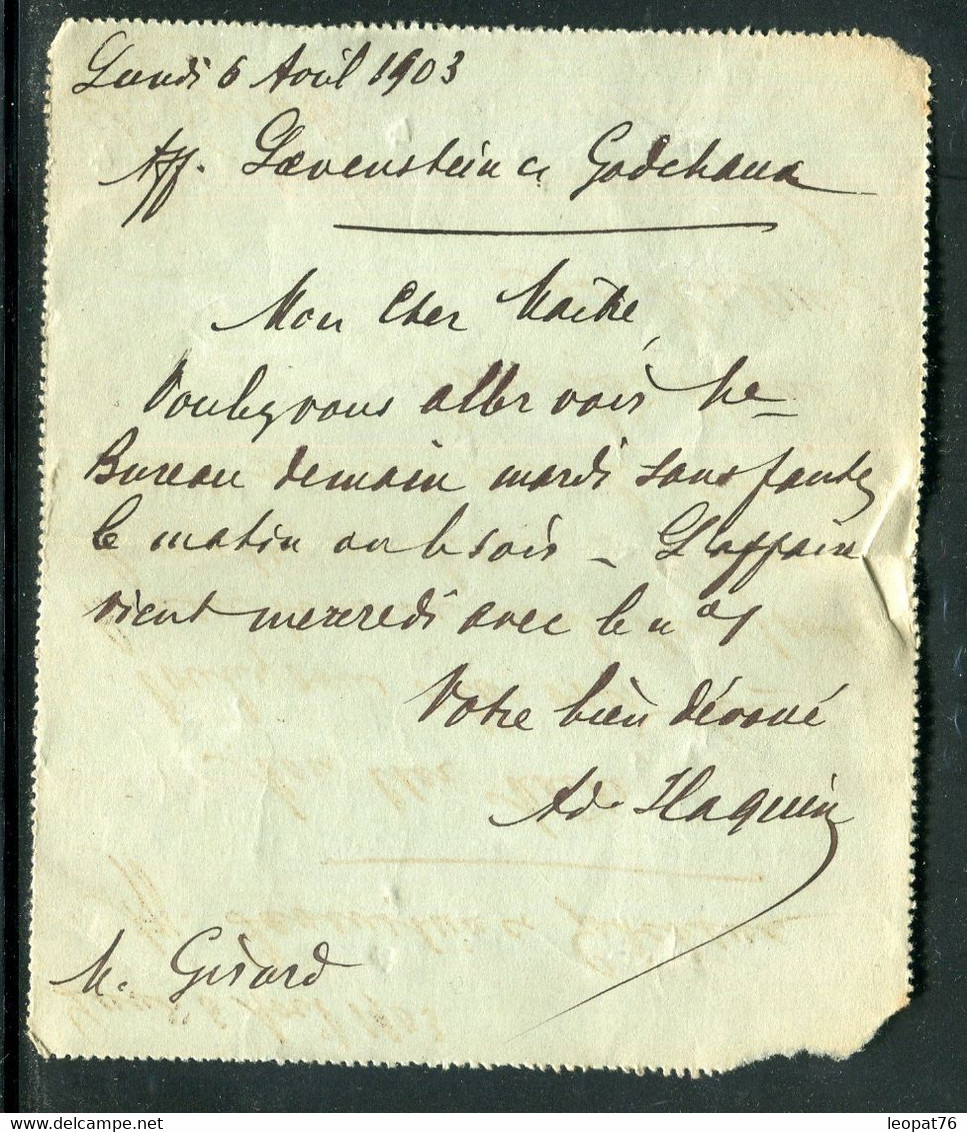 Lundi 6 Avril 1903
Aff. Lœvenstein c. Godchaux
Mon Cher Maître,
Voulez vous aller voir Me
Bureau demain mardi sans faute,
le matin ou le soir - L'affaire
vient mercredi avec le n°
Votre bien dévoué
Ad. Haquin
M. Girard
leopat76